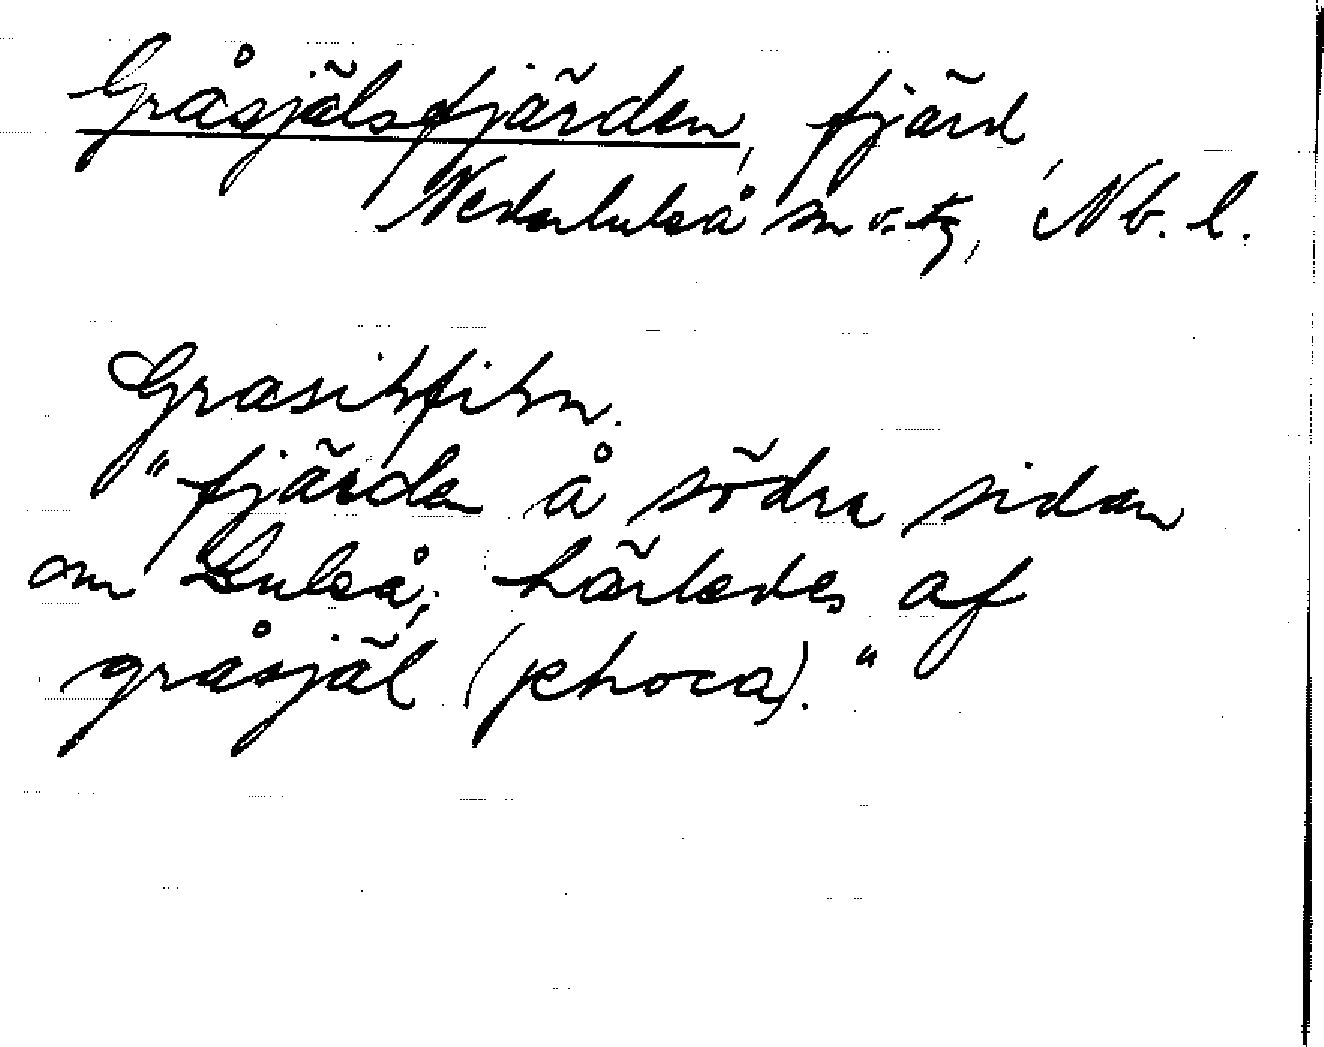 Gråsjälsfjärden, fjärd
Nederluleå sn o. tg, Nb. l.
"fjärden å södra sidan
om Luleå; härledes af
gråsjäl (phoca)."